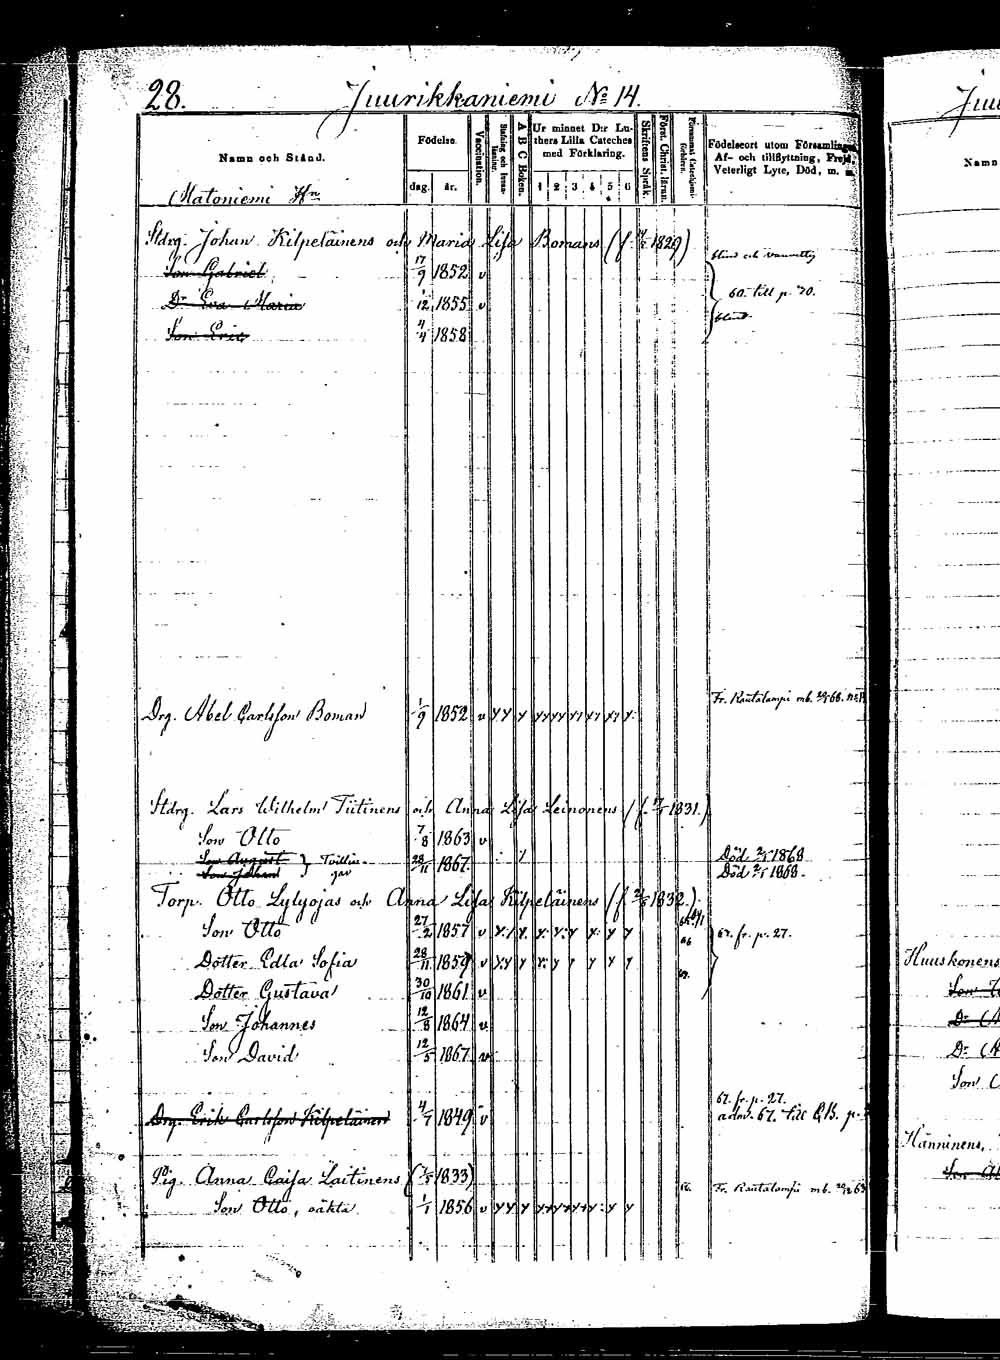 28. Juurikkaniemi No 14.
Namn och Stånd.
Födelse.
dag. år.
Vaccination.
A B C Boken.
Ur minnet D:r Luthers Lilla Cateches med Förklaring.
1 2 3 4 5 6
Skriftens Språk.
Först. Christ. läran.
Födelseort utom Församlingen,
Af- och tillflyttning, Frejd,
Veterligt Lyte, Död, m. m.
Matoniemi Hn
Stdrg. Johan Kilpeläinens och Maria Lisa Bomans (f. 1829)
Son Gabriel 17/9 1852 v
60. till p. 70.
Dr Eva Maria 1/12 1855 v
blind
Son Eric 4/4 1858
Fr. Rautalampi mb.
Drg. Abel Carlsson Boman 1/9 1852 v
Stdrg. Lars Wilhelm Tiitinens och Anna Lisa Leinonens (f. 1831.)
Son Otto 7/8 1863 v
Son August Tvillin- Död 1868
Son Johan gar 28/11 1867. Död 1868.
Torp. Otto Lylyojas och Anna Lisa Kilpeläinens (f. 1832.)
Son Otto 27/2 1857 v 67. fr. p. 27.
Dotter Edla Sofia 28/11 1859 v
Dotter Gustava 30/10 1861 v
Son Johannes 12/8 1864 v
Son David 12/5 1867 v
67. fr. p. 27.
Drg. Erik Carlsson Kilpeläinen 4/7 1849 v adm. 67. till
Pig. Anna Caisa Laitinens (1833)
Fr. Rautalampi mb.
Son Otto, oäkta 1/1 1856 v
Namn
Huuskonens
Hänninens,